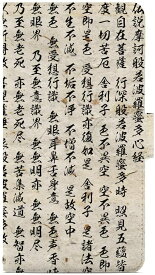 佛說摩訶般若波羅蜜多心經
觀自在菩薩行深般若波羅蜜多時照見五蘊皆
度一切苦厄舍利子色不異空空不異色色即
空即是色受想行識亦復如是舍利子是諸法空
不生不滅不垢不淨不增不減是故空中
無受想行識無眼耳鼻舌身意無色
無眼界乃至無意識界無無明亦無無明盡
乃至無老死亦無老死盡無苦集滅道無智亦